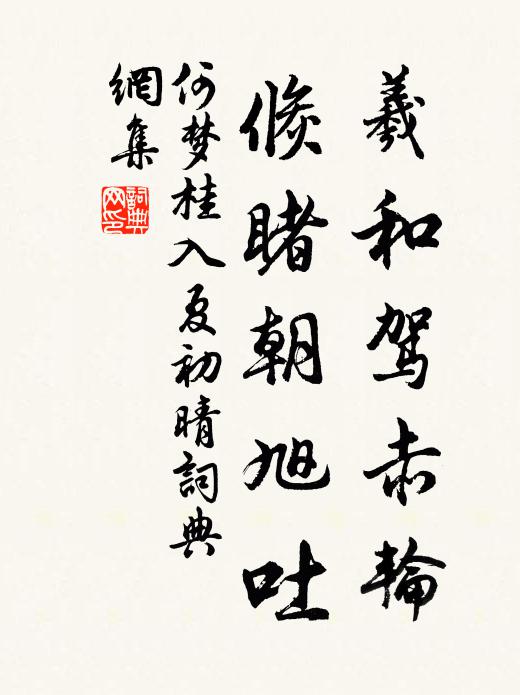 羲和驾赤輪
倏睹朝旭吐
何梦桂入夏初晴詞典
網集
詞典
网印